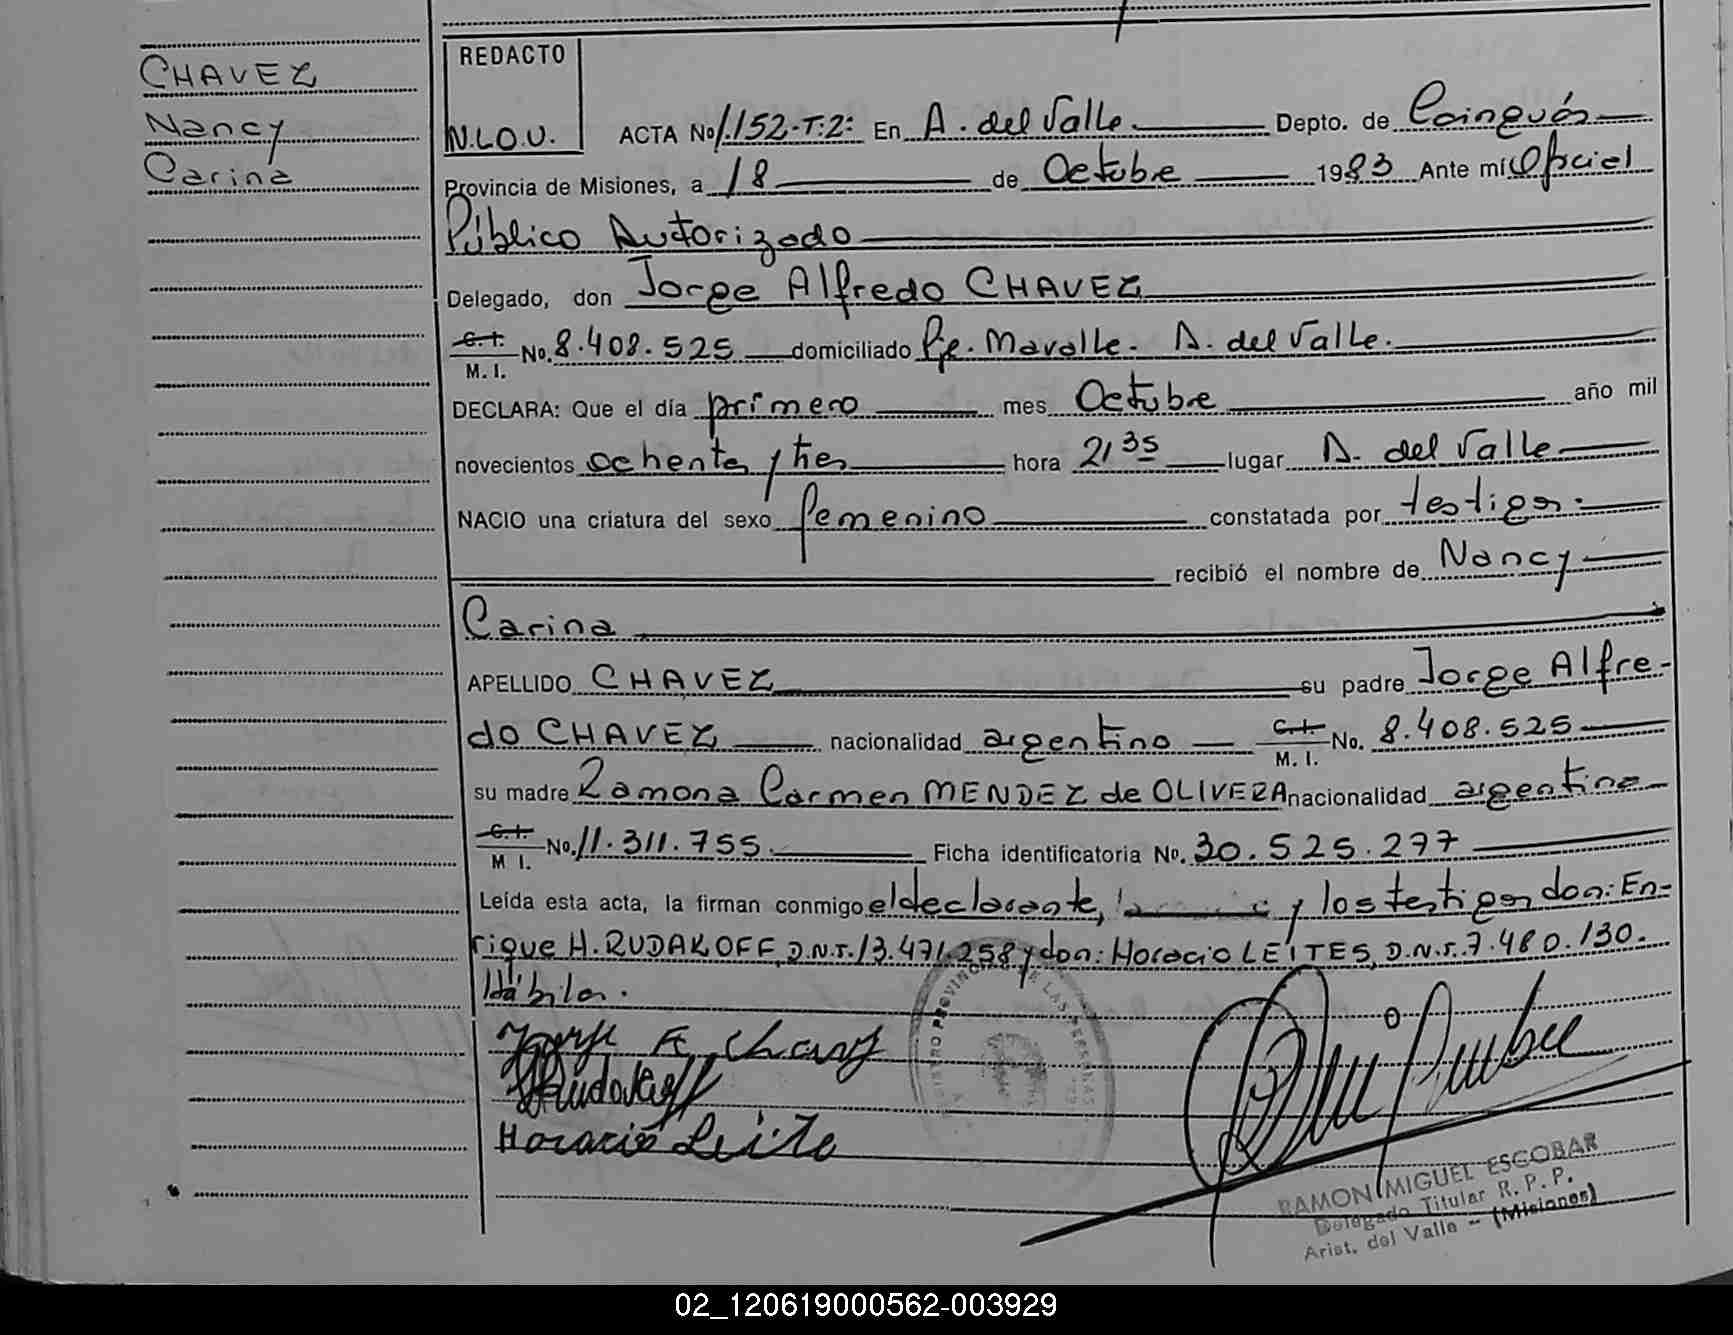 CHAVEZ
Nancy
Carina
REDACTO
N.L.O.U.
ACTA No 1.152-T:2: En A. del Valle Depto. de Cainguás
Provincia de Misiones, a 18 de Octubre 1983 Ante mí Oficial
Público Autorizado
Delegado, don Jorge Alfredo CHAVEZ
C.I. M.I. No. 8.408.525 domiciliado Pje. Mavalle. A. del Valle.
DECLARA: Que el día primero mes Octubre año mil
novecientos ochenta y tres hora 21 35 lugar A. del Valle
NACIO una criatura del sexo femenino constatada por testigos.
recibió el nombre de Nancy
Carina
APELLIDO CHAVEZ su padre Jorge Alfre-
do CHAVEZ nacionalidad argentino C.I. M.I. No. 8.408.525
su madre Ramona Carmen MENDEZ de OLIVERA nacionalidad argentina
C.I. M I. No. 11.311.755. Ficha identificatoria No. 30.525.277
Leída esta acta, la firman conmigo el declarante, y los testigos don: En-
rique H. RUDAKOFF, D.N.I. 13.471.258 y don: Horacio LEITES, D.N.I. 7.480.130.
Hábiles.
Jorge A. Chavez
Rudakoff
Horacio Leite
RAMON MIGUEL ESCOBAR
Delegado Titular R. P. P.
Arist. del Valle - (Misiones)
02_120619000562-003929